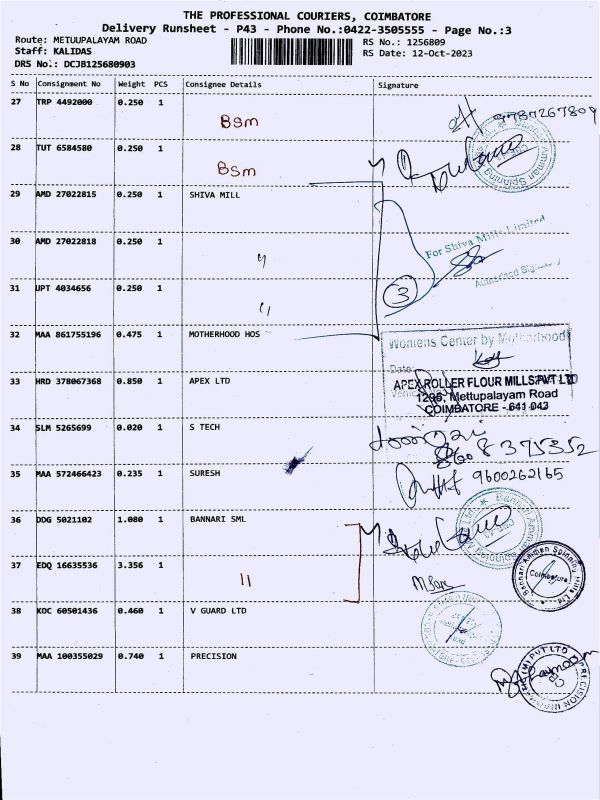 THE PROFESSIONAL COURIERS, COIMBATORE
Delivery Runsheet - P43 - Phone No.:0422-3505555 - Page No.:3
Route: METUUPALAYAM ROAD
RS No.: 1256809
Staff: KALIDAS
RS Date: 12-Oct-2023
DRS No.: DCJB125680903
S No Consignment No Weight PCS Consignee Details Signature
27 TRP 4492000 0.250 1
BSm
9787267809
28 TUT 6584580 0.250 1
BSm
29 AMD 27022815 0.250 1 SHIVA MILL
30 AMD 27022818 0.250 1
"
For Shiva Mills Limited
Authorised Signatory
31 UPT 4034656 0.250 1
"
3
32 MAA 861755196 0.475 1 MOTHERHOOD HOS
Womens Center by Motherhood
Date:
33 HRD 378067368 0.850 1 APEX LTD
APEX ROLLER FLOUR MILLS PVT LTD
1296, Mettupalayam Road
COIMBATORE - 641 043
34 SLM 5265699 0.020 1 S TECH
8608375352
35 MAA 572466423 0.235 1 SURESH
9600262165
36 DDG 5021102 1.080 1 BANNARI SML
37 EDQ 16635536 3.356 1
"
Bannari Amman Spinning Mills Ltd
Coimbatore
38 KOC 60501436 0.460 1 V GUARD LTD
39 MAA 100355029 0.740 1 PRECISION